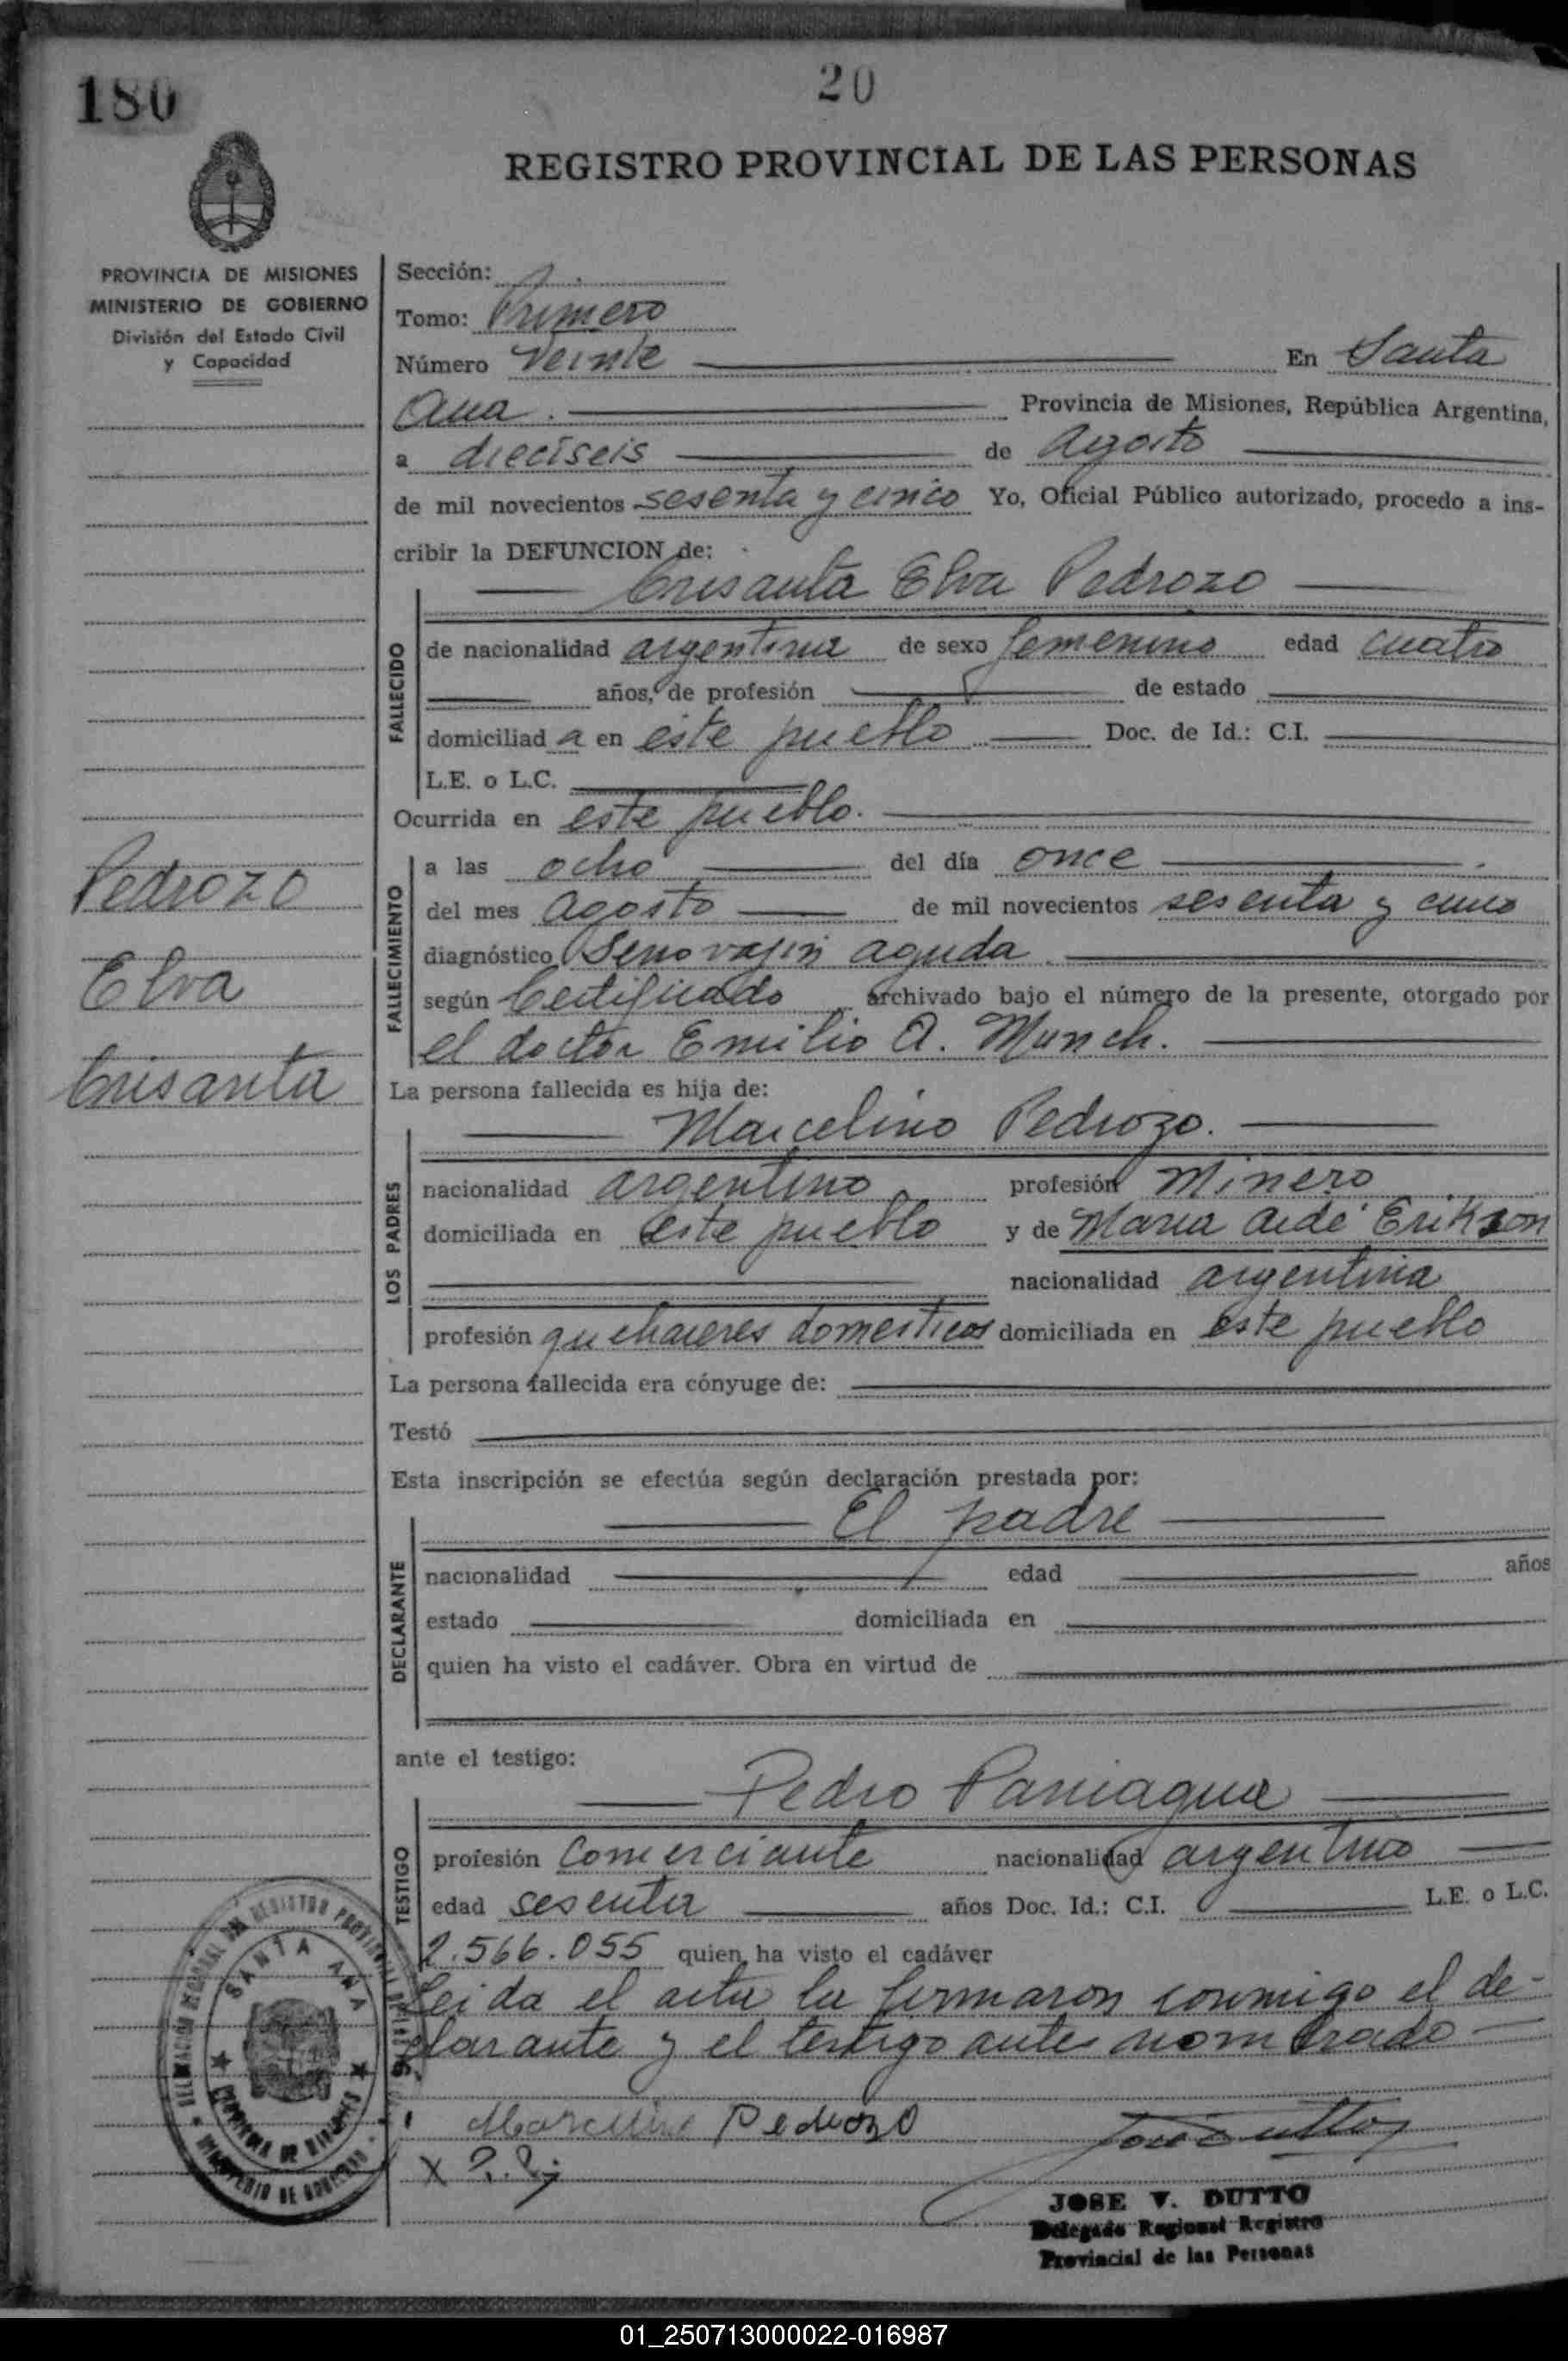 180
20
REGISTRO PROVINCIAL DE LAS PERSONAS
PROVINCIA DE MISIONES
MINISTERIO DE GOBIERNO
División del Estado Civil
y Capacidad
Pedrozo
Elva
Crisanta
Sección: 1.
Tomo: Primero
Número Veinte En Santa
Ana. Provincia de Misiones, República Argentina,
a dieciseis de Agosto
de mil novecientos sesenta y cinco Yo, Oficial Público autorizado, procedo a ins-
cribir la DEFUNCION de:
Crisanta Elva Pedrozo
FALLECIDO
de nacionalidad argentina de sexo femenino edad cuatro
años, de profesión de estado
domiciliad a en este pueblo Doc. de Id.: C.I.
L.E. o L.C.
Ocurrida en este pueblo.
FALLECIMIENTO
a las ocho del día once
del mes Agosto de mil novecientos sesenta y cinco
diagnóstico aguda.
según Certificado archivado bajo el número de la presente, otorgado por
el doctor Emilio A. Munch.
La persona fallecida es hija de:
Marcelino Pedrozo.
LOS PADRES
nacionalidad argentino profesión Minero
domiciliada en este pueblo y de Maria Aidé Erikson
nacionalidad argentina
profesión quehaceres domesticos domiciliada en este pueblo
La persona fallecida era cónyuge de:
Testó
Esta inscripción se efectúa según declaración prestada por:
El padre
DECLARANTE
nacionalidad edad años
estado domiciliada en
quien ha visto el cadáver. Obra en virtud de
ante el testigo:
Pedro Paniagua
TESTIGO
profesión Comerciante nacionalidad argentino
edad sesenta años Doc. Id.: C.I. L.E. o L.C.
2.566.055 quien ha visto el cadáver
Leida el acta la firmaron conmigo el de-
clarante y el testigo antes nombrado
Marcelino Pedrozo
SANTA ANA
PROVINCIA DE MISIONES
MINISTERIO DE GOBIERNO
JOSE V. DUTTO
Delegado Regional Registro
Provincial de las Personas
01_250713000022-016987